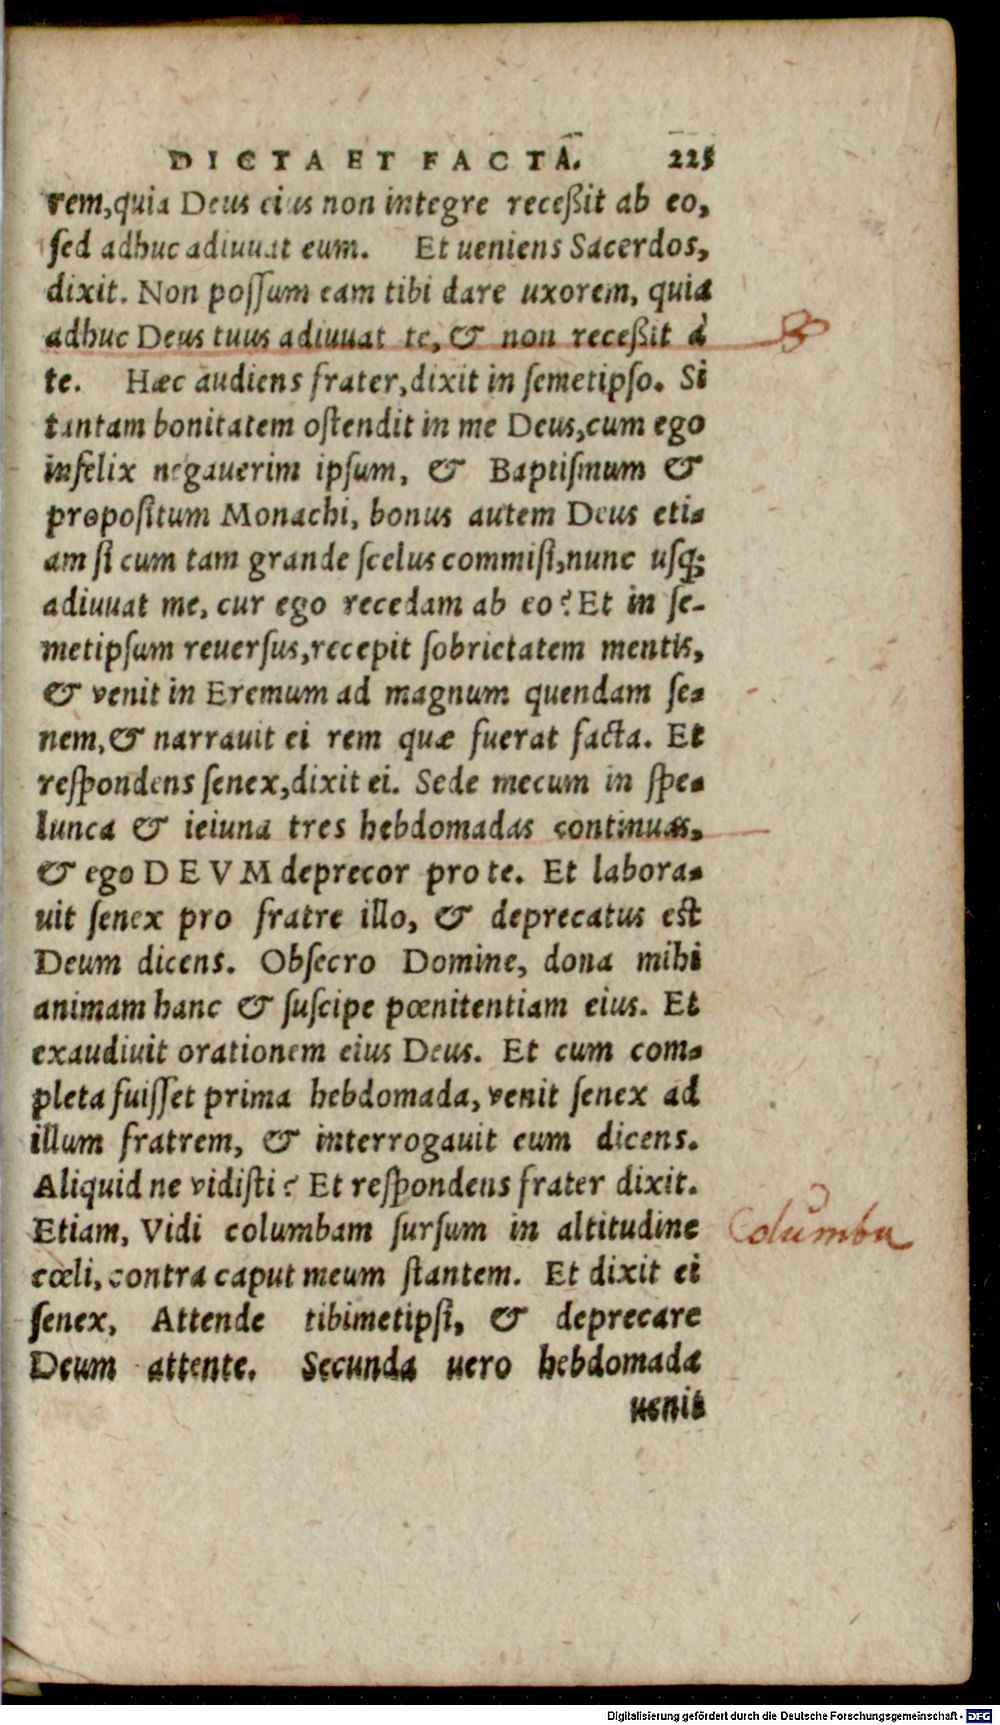 DICTA ET FACTA. 225
rem,quia Deus eius non integre receßit ab eo,
ſed adhuc adiuuat eum. Et ueniens Sacerdos,
dixit. Non poſſum eam tibi dare uxorem, quia
adhuc Deus tuus adiuuat te, & non receßit à
te. Hæc audiens frater,dixit in ſemetipſo. Si
tantam bonitatem oſtendit in me Deus,cum ego
infelix negauerim ipſum, & Baptiſmum &
propoſitum Monachi, bonus autem Deus eti-
am ſi cum tam grande ſcelus commiſi,nunc uſq;
adiuuat me, cur ego recedam ab eo? Et in ſe-
metipſum reuerſus,recepit ſobrietatem mentis,
& venit in Eremum ad magnum quendam ſe-
nem,& narrauit ei rem quæ fuerat facta. Et
reſpondens ſenex,dixit ei. Sede mecum in ſpe-
lunca & ieiuna tres hebdomadas continuas,
& ego DEVM deprecor pro te. Et labora-
uit ſenex pro fratre illo, & deprecatus est
Deum dicens. Obſecro Domine, dona mihi
animam hanc & ſuſcipe pœnitentiam eius. Et
exaudiuit orationem eius Deus. Et cum com-
pleta fuiſſet prima hebdomada, venit ſenex ad
illum fratrem, & interrogauit eum dicens.
Aliquid ne vidiſti? Et reſpondens frater dixit.
Etiam, Vidi columbam ſurſum in altitudine
Columba
cœli, contra caput meum ſtantem. Et dixit ei
ſenex, Attende tibimetipſi, & deprecare
Deum attente. Secunda uero hebdomada
uenit
Digitalisierung gefördert durch die Deutsche Forschungsgemeinschaft - DFG